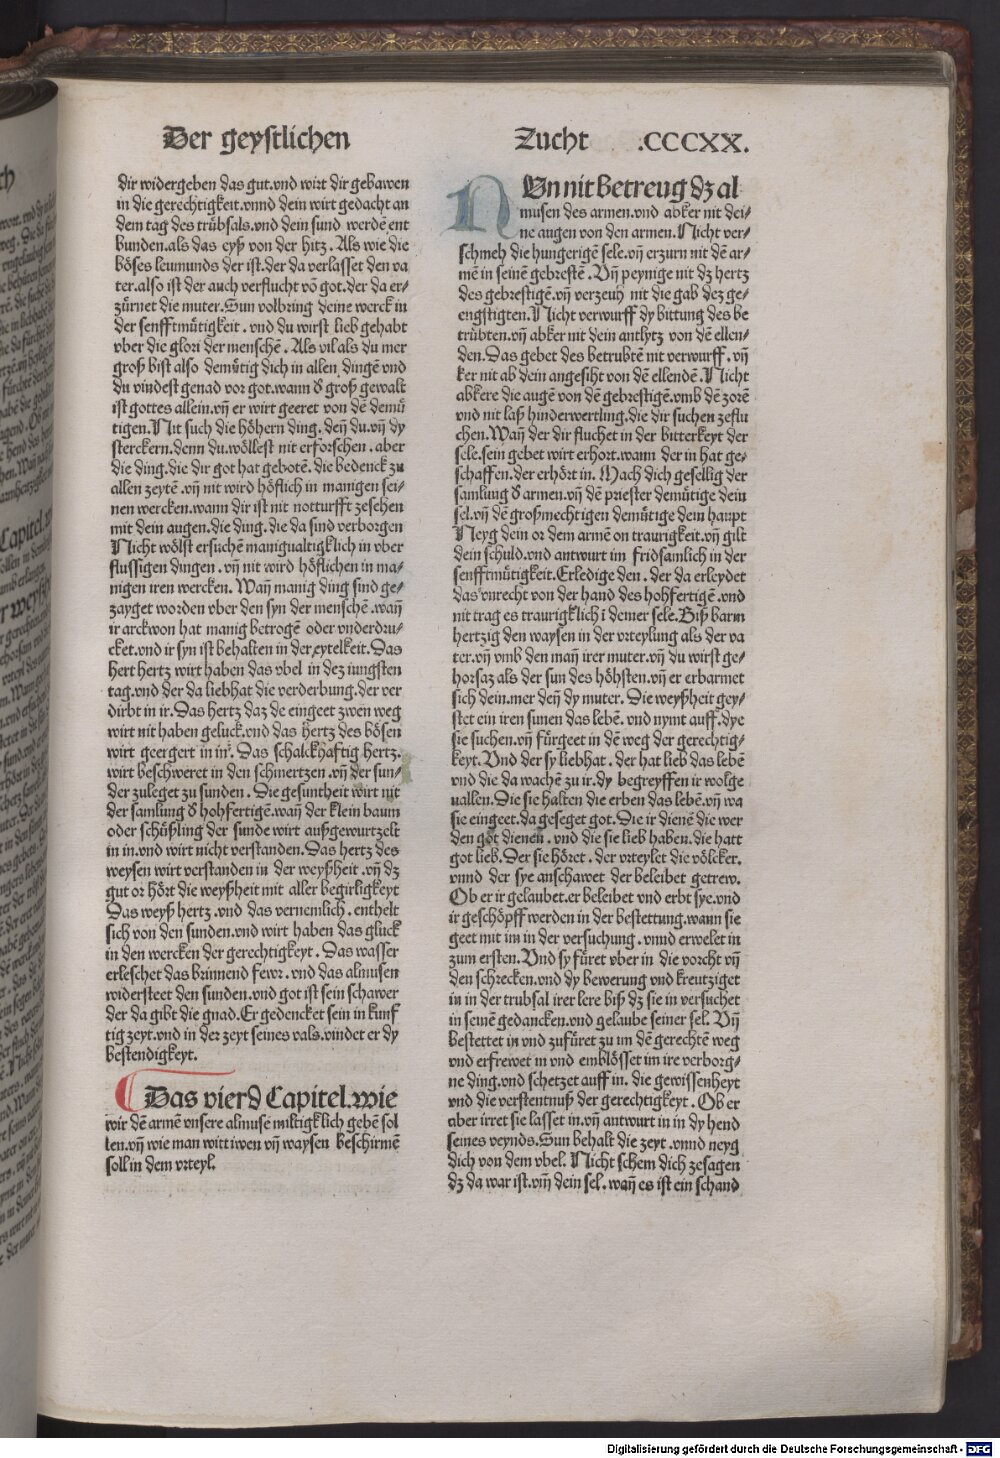 Der geystlichen
Zucht .CCCXX.
dir widergeben das gut.vnd wirt dir gebawen
in die gerechtigkeit.vnnd dein wirt gedacht an
dem tag des trübsals.vnd dein sund werdē ent
bunden.als das eyß von der hitz. Als wie die
böses leumunds der ist.der da verlasset den va
ter.also ist der auch verflucht vō got.der da er⸗
zürnet die muter.Sun volbring deine werck in
der senfftmütigkeit. vnd du wirst lieb gehabt
vber die glori der menschē. Als vil als du mer
groß bist also demütig dich in allen dingē vnd
du vindest genad vor got.wann d̕ groß gewalt
ist gottes allein.vn̄ er wirt geeret von dē demü
tigen.Nit such die höhern ding. den̄ du.vn̄ dy
sterckern.denn du.wöllest nit erforschen. aber
die ding.die dir got hat gebotē.die bedenck zu
allen zeytē.vn̄ nit wird höflich in manigen sei⸗
nen wercken.wann dir ist nit notturfft zesehen
mit dein augen.die ding.die da sind verborgen
Nicht wölst ersuchē manigualtigklich in vber
flussigen dingen. vn̄ nit wird höflichen in ma⸗
nigen iren wercken. Wan̄ manig ding sind ge⸗
zayget worden vber den syn der menschē.wan̄
ir arckwon hat manig betrogē oder vnderdru⸗
cket.vnd ir syn ist behalten in der eytelkeit.Das
hert hertz wirt haben das vbel in dez iungsten
tag.vnd der da liebhat die verderbung.der ver
dirbt in ir.Das hertz daz de eingeet zwen weg
wirt nit haben geluck.vnd das hertz des bösen
wirt geergert in in̄. Das schalckhaftig hertz.
wirt beschweret in den schmertzen.vn̄ der sun⸗
der zuleget zu sunden. Die gesuntheit wirt nit
der samlung d̕ hohfertigē.wan̄ der klein baum
oder schüßling der sunde wirt außgewurtzelt
in in.vnd wirt nicht verstanden.Das hertz des
weysen wirt verstanden in der weyßheit. vn̄ dz
gut or hört die weyßheit mit aller begirligkeyt
Das weyß hertz.vnd das vernemlich. enthelt
sich von den sunden.vnd wirt haben das gluck
in den wercken der gerechtigkeyt. Das wasser
erleschet das brinnend fewr.vnd das almusen
widersteet den sunden.vnd got ist sein schawer
der da gibt die gnad.Er gedencket sein in kunf
tig zeyt.vnd in der zeyt seines vals.vindet er dy
bestendigkeyt.
Das vierd Capitel.wie
wir dē armē vnsere almusē miltigklich gebē sol
len.vn̄ wie man wittiwen vn̄ waysen beschirmē
soll in dem vrteyl.
NVn nit betreug dz al
musen des armen.vnd abker nit dei⸗
ne augen von den armen.Nicht ver⸗
schmeh die hungerigē sele.vn̄ erzurn nit dē ar⸗
mē in seinē gebrestē. Vn̄ peynige nit dz hertz
des gebrestigē.vn̄ verzeuh nit die gab dez ge⸗
engstigten.Nicht verwurff dy bittung des be
trübten.vn̄ abker nit dein antlytz von dē ellen⸗
den.Das gebet des betrubtē nit verwurff. vn̄
ker nit ab dein angesiht von dē ellendē.Nicht
abkere die augē von dē gebrestigē.vmb dē zorē
vnd nit laß hinderwertling.die dir suchen zeflu
chen.Wan̄ der dir fluchet in der bitterkeyt der
sele.sein gebet wirt erhort.wann der in hat ge⸗
schaffen.der erhört in. Mach dich gesellig der
samlung d̕ armen.vn̄ dē priester demütige dein
sel.vn̄ dē großmechtigen demütige dein haupt
Neyg dein or dem armē on traurigkeit.vn̄ gilt
dein schuld.vnd antwurt im fridsamlich in der
senfftmütigkeit.Erledige den. der da erleydet
das vnrecht von der hand des hohfertigē.vnd
nit trag es traurigklich ī deiner sele.Biß barm
hertzig den waysen in der vrteylung als der va
ter.vn̄ vmb den man̄ irer muter.vn̄ du wirst ge⸗
horsaz als der sun des höhsten.vn̄ er erbarmet
sich dein.mer den̄ dy muter. Die weyßheit gey⸗
stet ein iren sunen das lebē. vnd nymt auff.dye
sie suchen.vn̄ fürgeet in dē weg der gerechtig⸗
keyt.Vnd der sy liebhat. der hat lieb das lebē
vnd die da wachē zu ir.dy begreyffen ir wolge
uallen.Die sie halten die erben das lebē.vn̄ wa
sie eingeet.da geseget got.Die ir dienē die wer
den got dienen. vnd die sie lieb haben.die hatt
got lieb.Der sie höret. der vrteylet die völcker.
vnnd der sye anschawet der beleibet getrew.
Ob er ir gelaubet.er beleibet vnd erbt sye.vnd
ir geschöpff werden in der bestettung.wann sie
geet mit im in der versuchung. vnnd erwelet in
zum ersten.Vnd sy füret vber in die vorcht vn̄
den schrecken.vnd dy bewerung vnd kreutziget
in in der trubsal irer lere biß dz sie in versuchet
in seinē gedancken.vnd gelaube seiner sel. Vn̄
bestettet in vnd zufüret zu im dē gerechtē weg
vnd erfrewet in vnd emblösset im ire verborg⸗
ne ding.vnd schetzet auff in. die gewissenheyt
vnd die verstentnuß der gerechtigkeyt. Ob er
aber irret sie lasset in.vn̄ antwurt in in dy hend
seines veynds.Sun behalt die zeyt.vnnd neyg
dich von dem vbel. Nicht schem dich zesagen
dz da war ist.vm̄ dein sel.wan̄ es ist ein schand
Digitalisierung gefördert durch die Deutsche Forschungsgemeinschaft - DFG